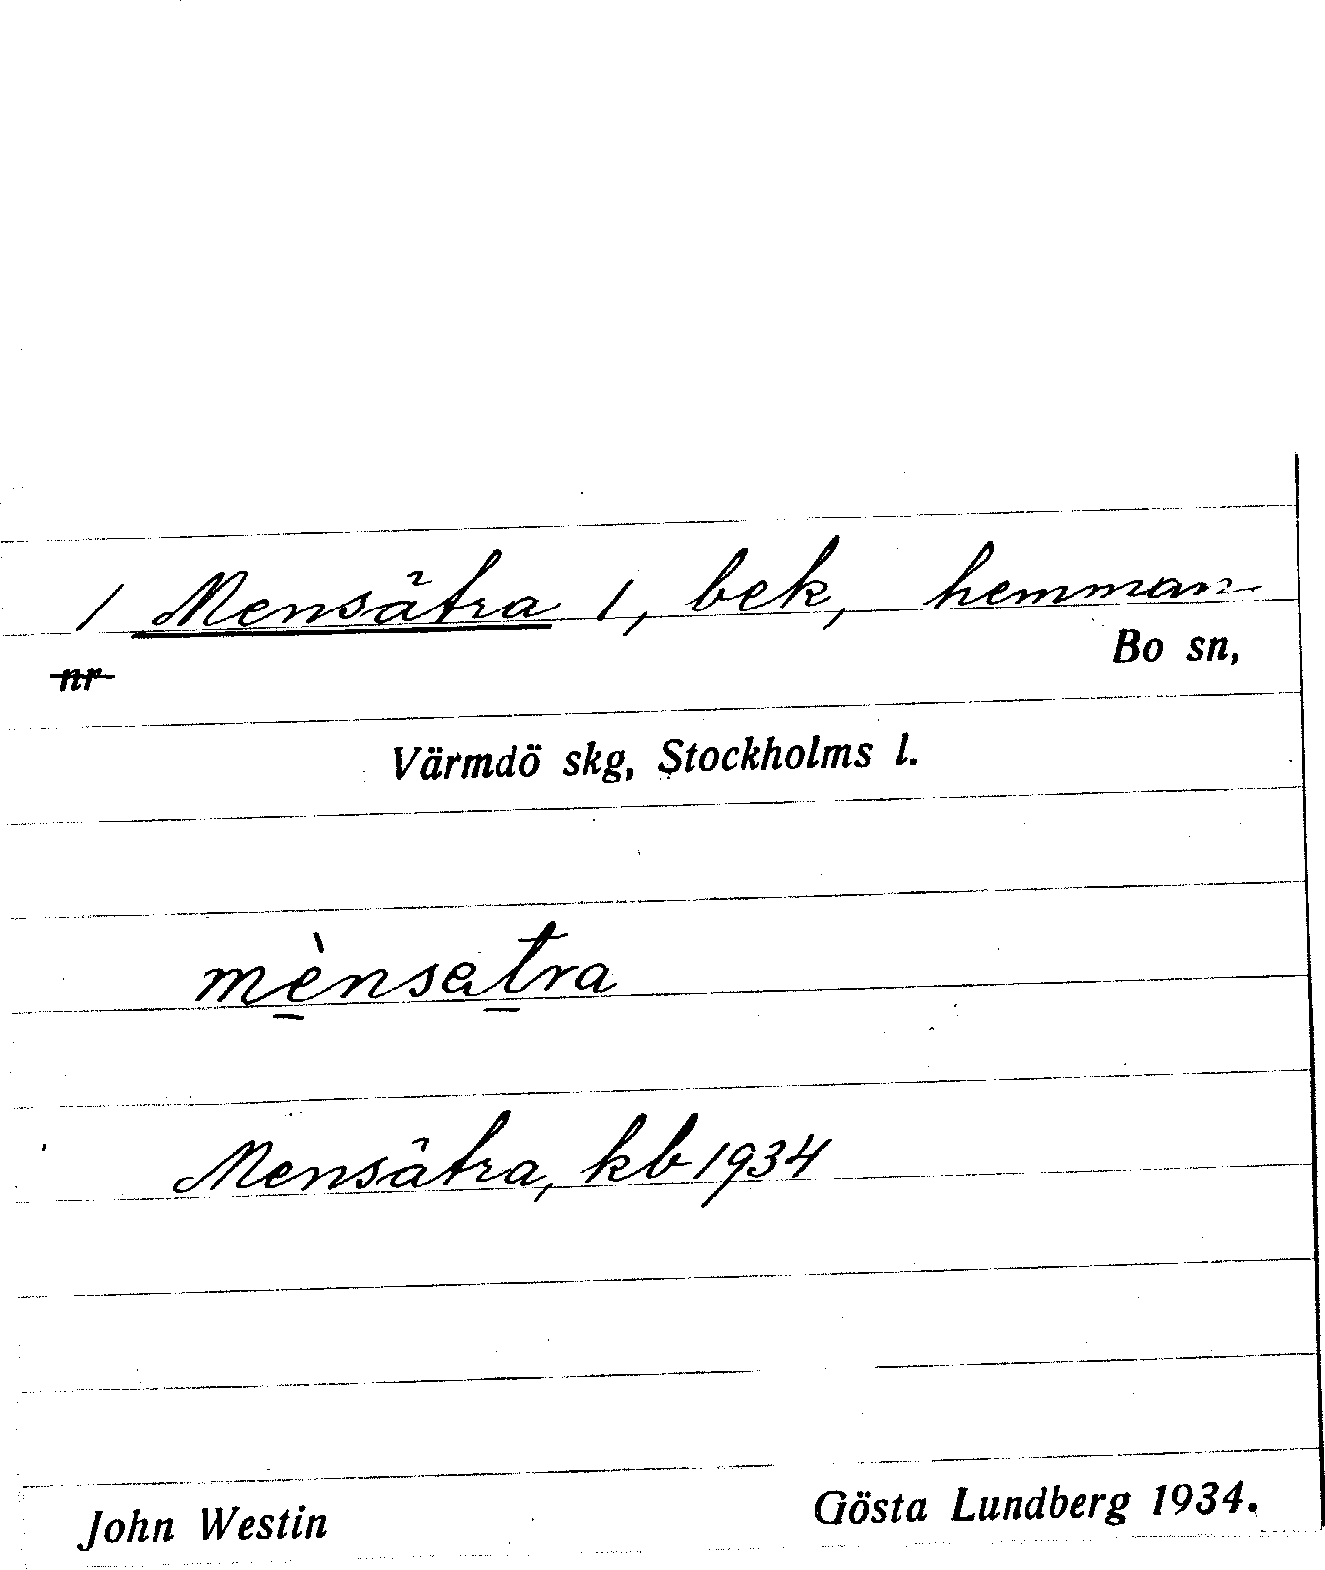 1 Mensätra 1, bek, hemman
Bo sn,
nr
Värmdö skg, Stockholms l.
mènsatra
Mensätra, kb 1934
John Westin
Gösta Lundberg 1934.